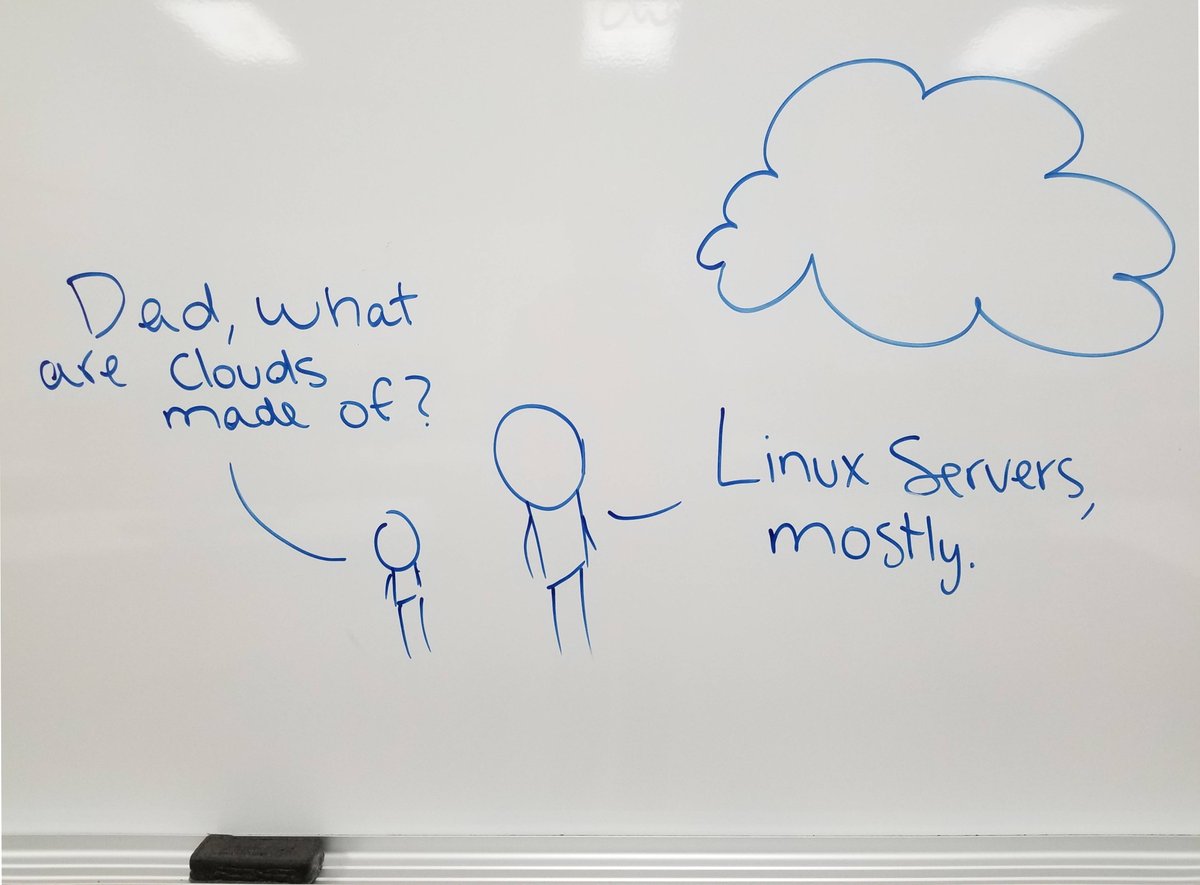 Dad, what
are clouds
made of?
Linux Servers,
mostly.